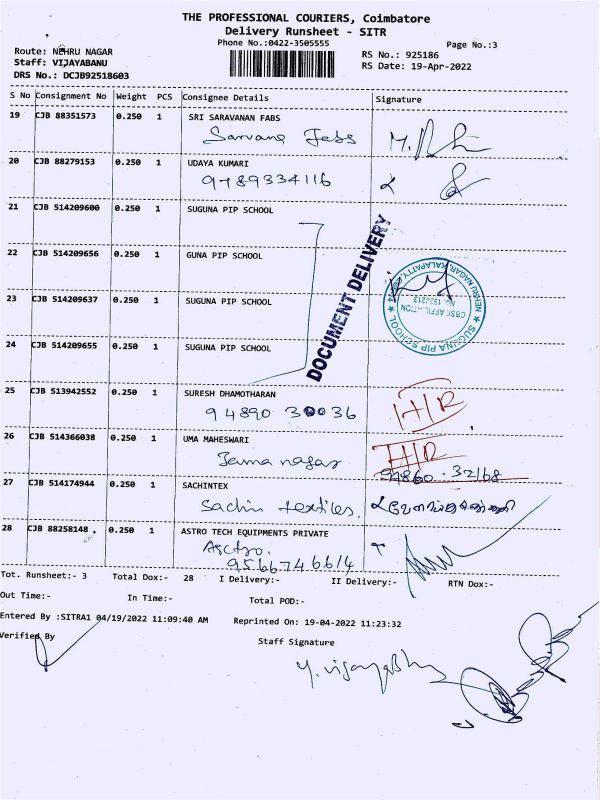 THE PROFESSIONAL COURIERS, Coimbatore
Delivery Runsheet - SITR
Phone No.:0422-3505555
Page No.:3
Route: NEHRU NAGAR
RS No.: 925186
Staff: VIJAYABANU
RS Date: 19-Apr-2022
DRS No.: DCJB92518603
S No Consignment No Weight PCS Consignee Details Signature
19 CJB 88351573 0.250 1 SRI SARAVANAN FABS
Sarvana Fabs
20 CJB 88279153 0.250 1 UDAYA KUMARI
9789334116
21 CJB 514209600 0.250 1 SUGUNA PIP SCHOOL
22 CJB 514209656 0.250 1 GUNA PIP SCHOOL
23 CJB 514209637 0.250 1 SUGUNA PIP SCHOOL
24 CJB 514209655 0.250 1 SUGUNA PIP SCHOOL
DOCUMENT DELIVERY
★ SUGUNA PIP SCHOOL ★
NEHRU NAGAR, KALAPATTY
CBSE AFFILIATION
25 CJB 513942552 0.250 1 SURESH DHAMOTHARAN
94890 30036
26 CJB 514366038 0.250 1 UMA MAHESWARI
nagar
94860 32168
27 CJB 514174944 0.250 1 SACHINTEX
Sachin textiles.
28 CJB 88258148 0.250 1 ASTRO TECH EQUIPMENTS PRIVATE
9566746614
Tot. Runsheet:- 3 Total Dox:- 28 I Delivery:- II Delivery:- RTN Dox:-
Out Time:- In Time:- Total POD:-
Entered By :SITRA1 04/19/2022 11:09:40 AM Reprinted On: 19-04-2022 11:23:32
Verified By
Staff Signature